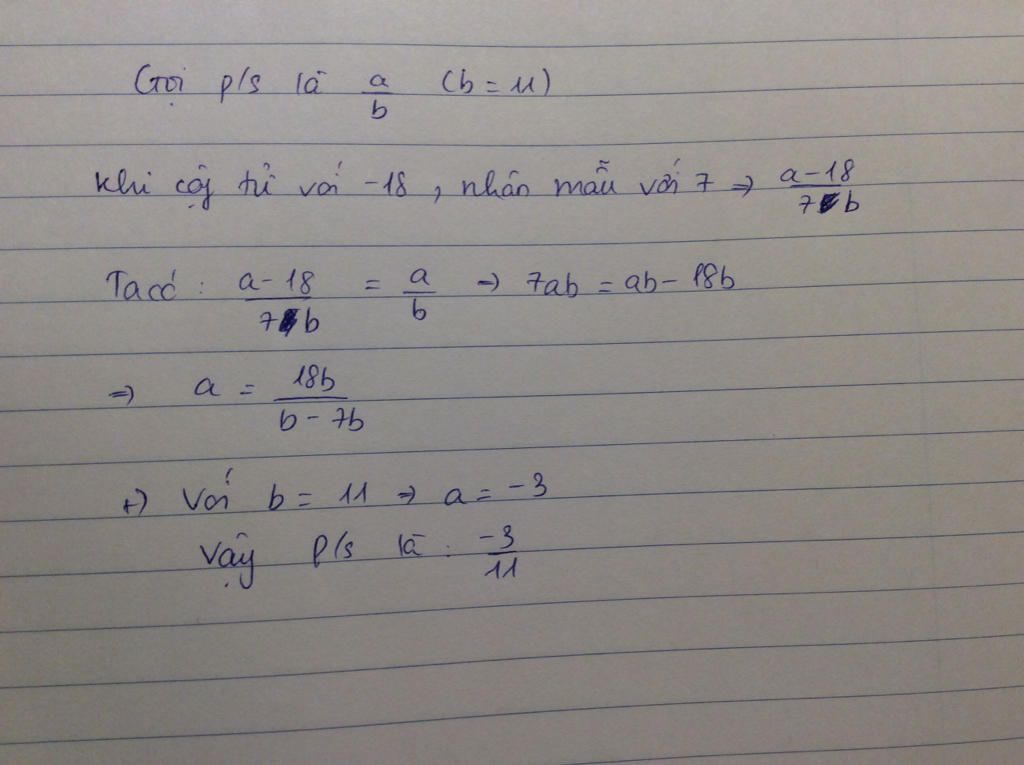 Gọi p/s là a/b (b = 11)
Khi cộg tử với -18, nhân mẫu với 7 => (a-18)/(7b)
Ta có: (a-18)/(7b) = a/b -> 7ab = ab - 18b
=> a = 18b/(b-7b)
+) Với b = 11 => a = -3
Vậy p/s là: -3/11